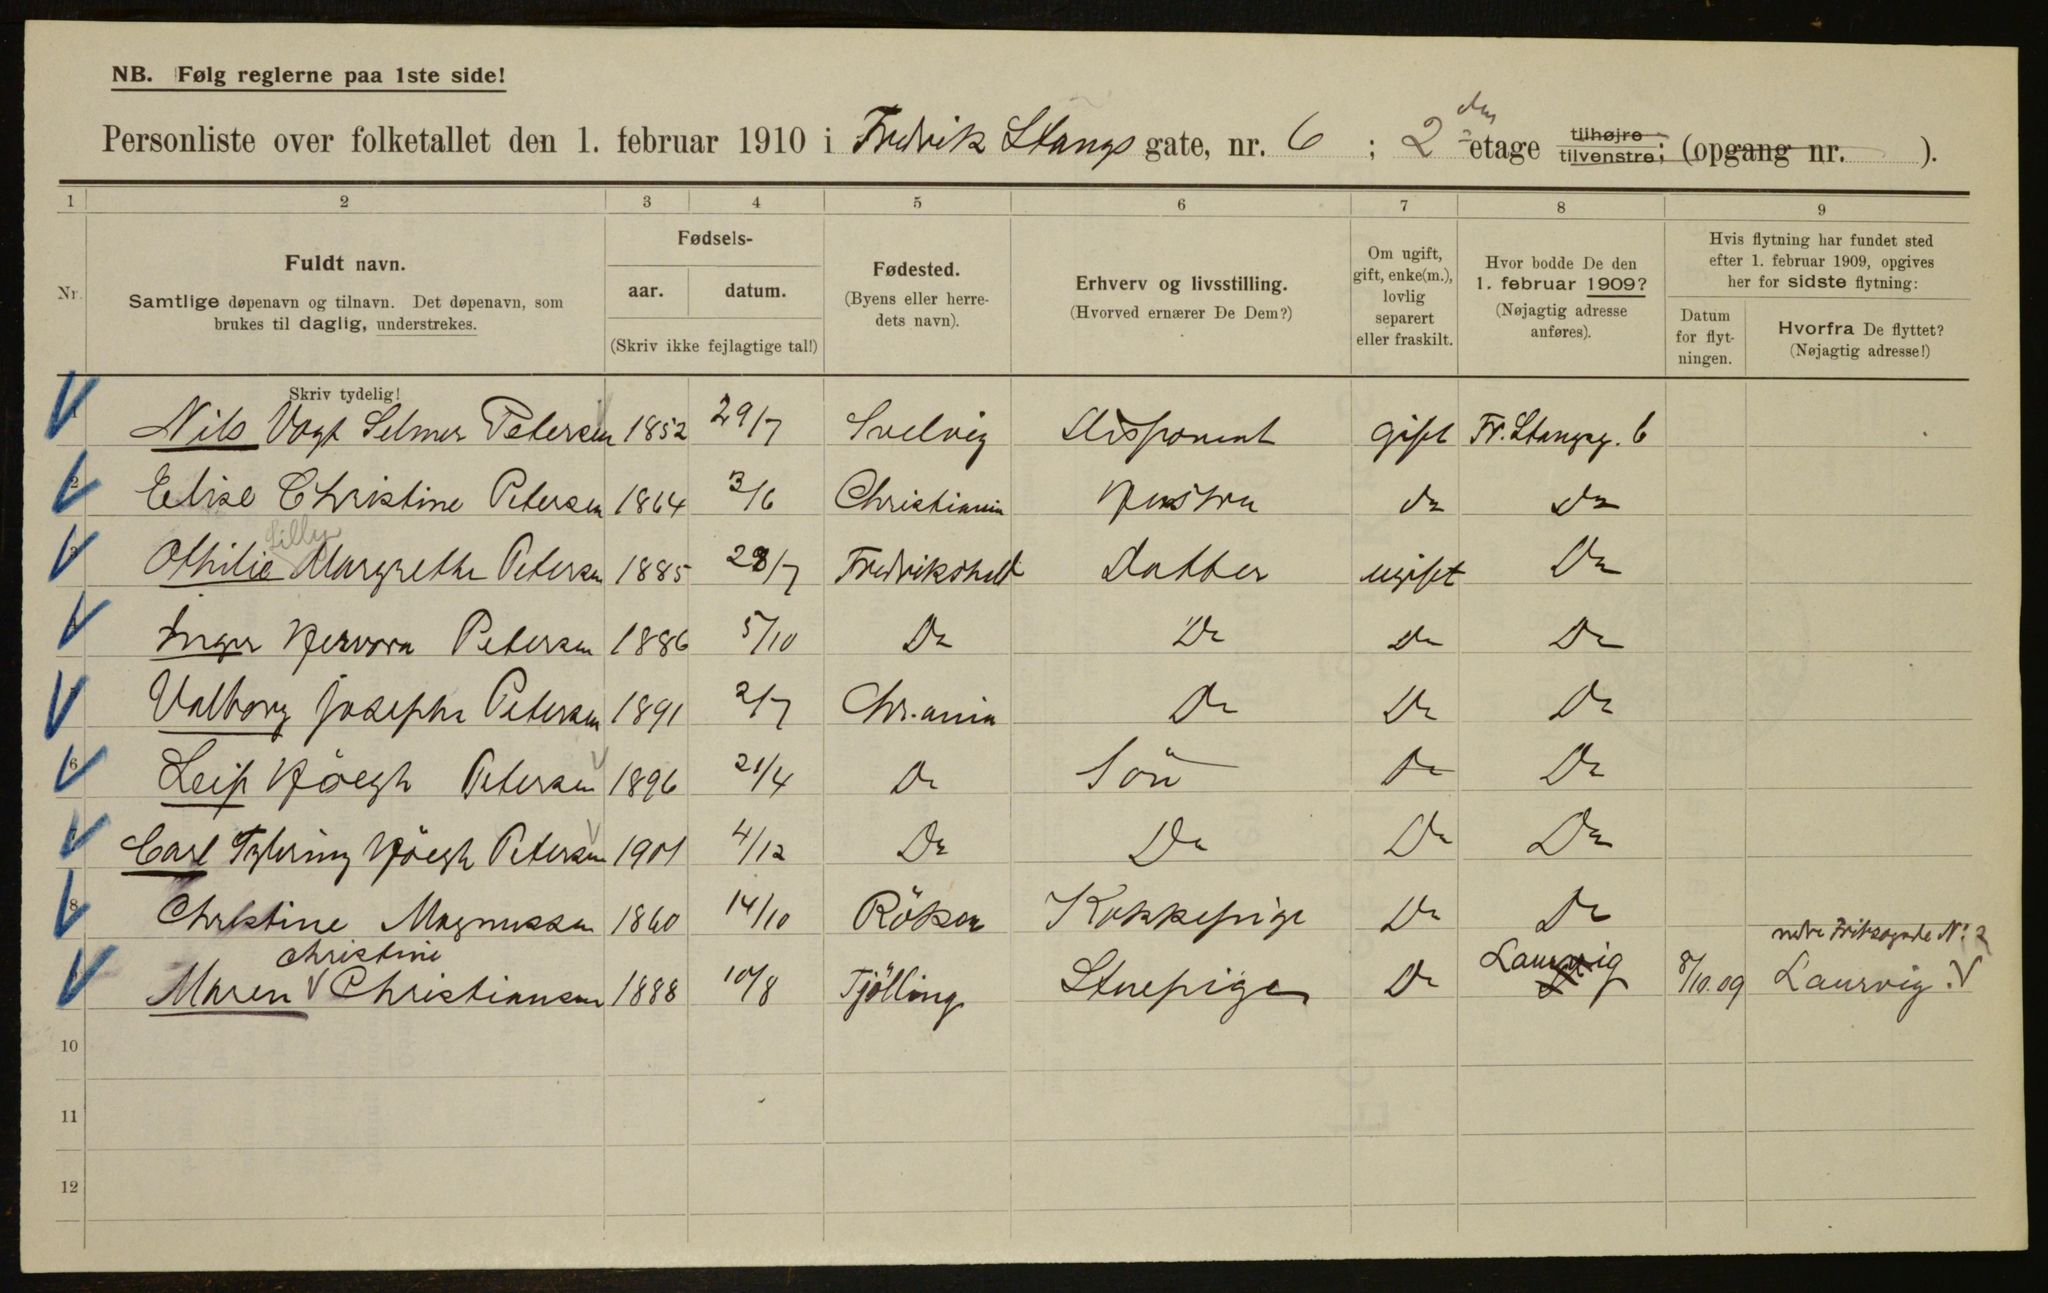 NB. Følg reglerne paa 1ste side!
Personliste over folketallet den 1. februar 1910 i Fredrik Stangs gate, nr. 6 ; 2 den etage tilhøjre tilvenstre; (opgang nr. ).
1 2 3 4 5 6 7 8 9
Nr.
Fuldt navn.
Samtlige døpenavn og tilnavn. Det døpenavn, som
brukes til daglig, understrekes.
Fødsels-
aar. datum.
(Skriv ikke fejlagtige tal!)
Fødested.
(Byens eller herre-
dets navn).
Erhverv og livsstilling.
(Hvorved ernærer De Dem?)
Om ugift,
gift, enke(m.),
lovlig
separert
eller fraskilt.
Hvor bodde De den
1. februar 1909?
(Nøjagtig adresse
anføres).
Hvis flytning har fundet sted
efter 1. februar 1909, opgives
her for sidste flytning:
Datum
for flyt-
ningen.
Hvorfra De flyttet?
(Nøjagtig adresse!)
Skriv tydelig!
1 Nils Vogt Selmer Petersen 1852 29/7 Svelvig Disponent gift Fr. Stangsg. 6
2 Elise Christine Petersen 1864 3/6 Christiania Hustru do Do
Lilly
3 Othilie Margrethe Petersen 1885 28/7 Fredrikshald Datter ugift Do
4 Inger Hervora Petersen 1886 5/10 Do Do Do Do
Valborg Josepha Petersen 1891 2/7 Chr.ania Do Do Do
6 Leif Høegh Petersen 1896 21/4 Do Sön Do Do
Carl Høegh Petersen 1901 4/12 Do Do Do Do
8 Christine Magnussen 1860 14/10 Röken Kokkepige Do Do
christine nedre Fritsøgade No. 2
Maren Christiansen 1888 10/8 Tjölling Stuepige Do Laurvig 8/10.09 Laurvig.
10
11
12